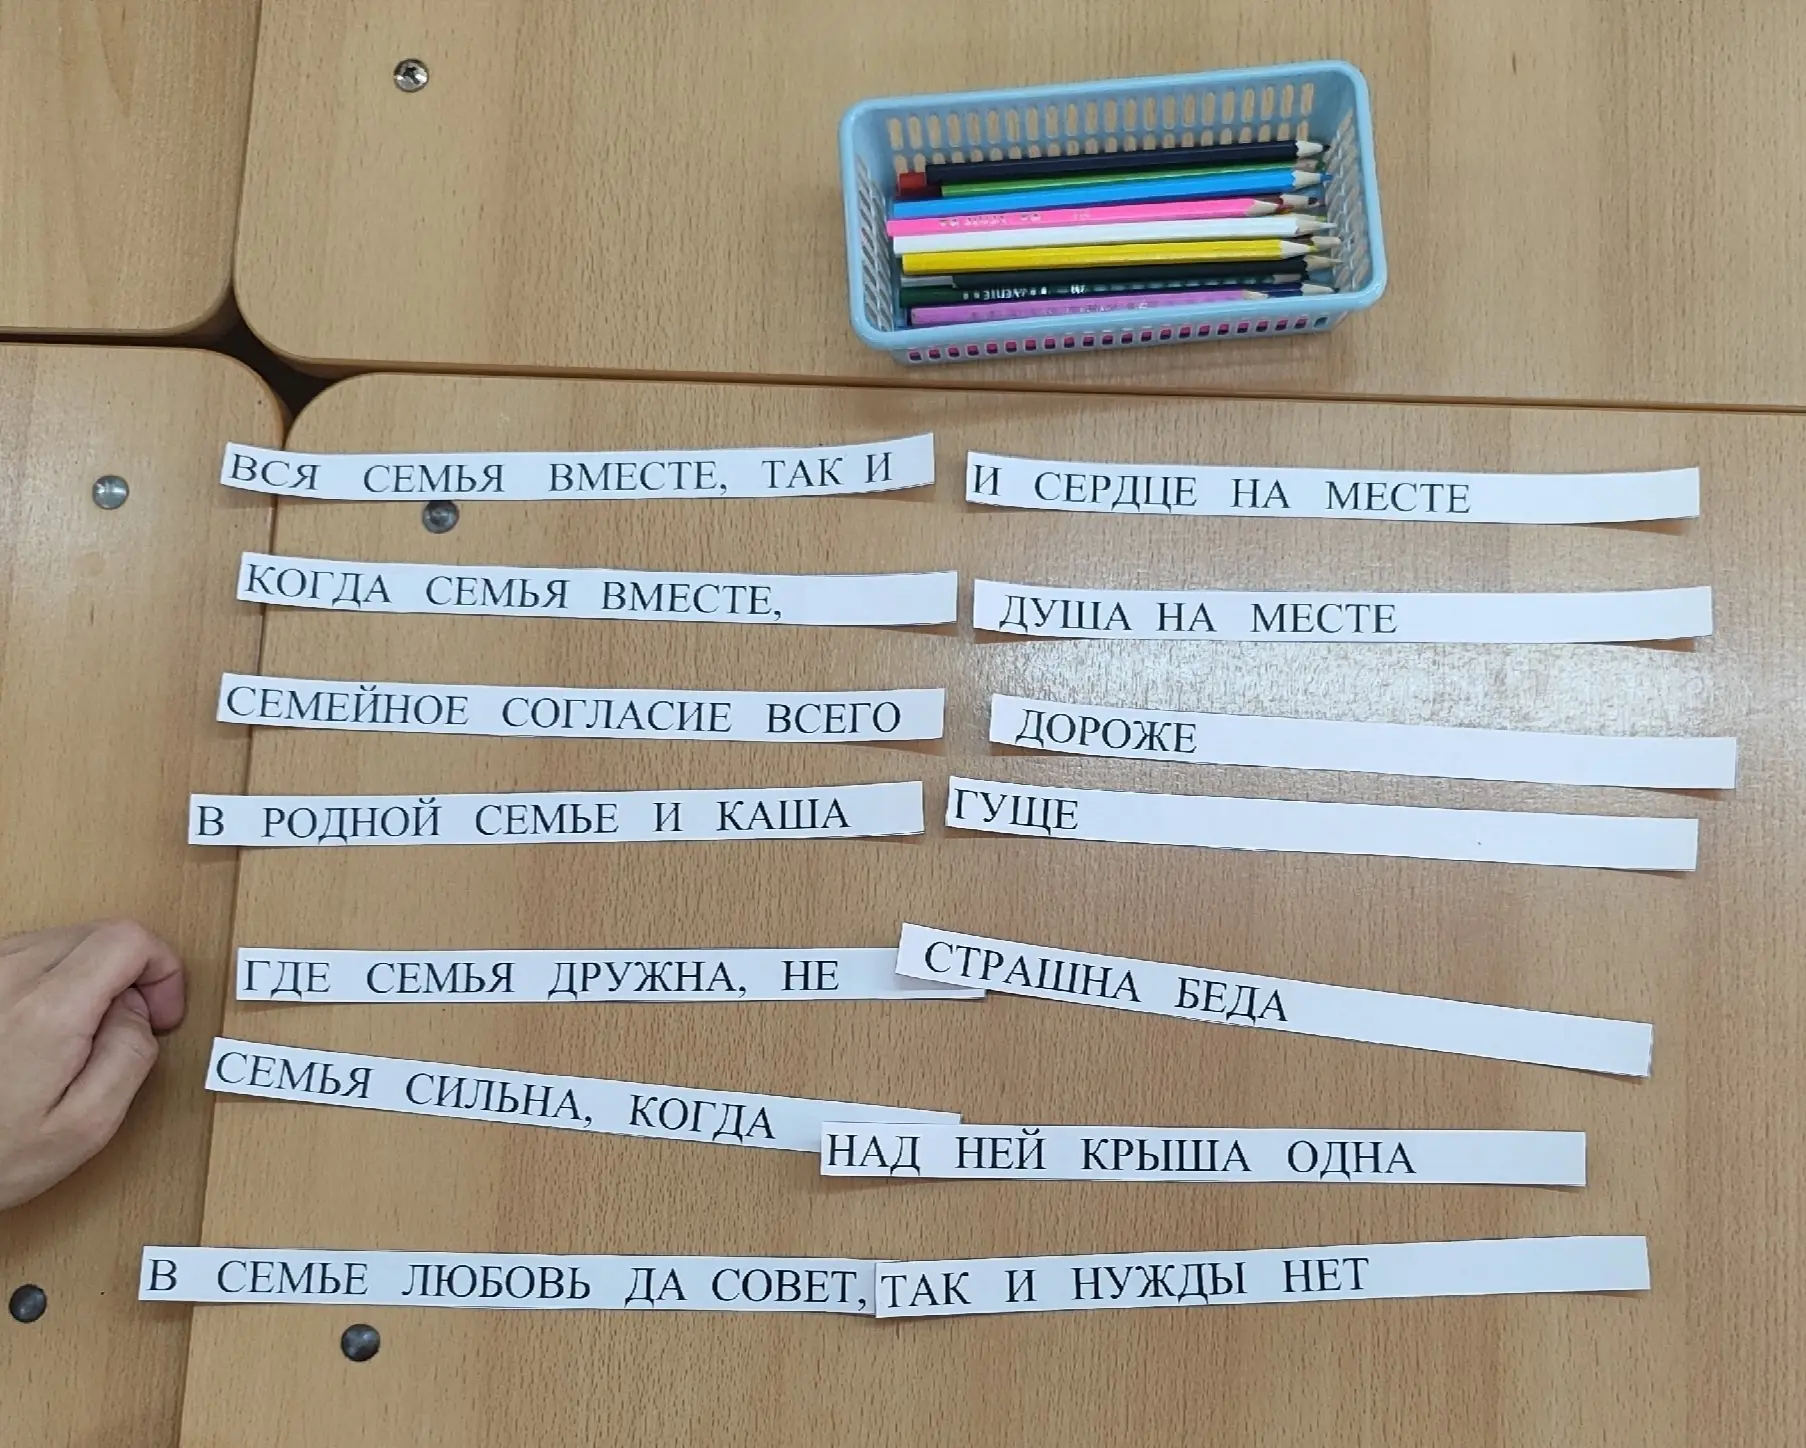 ВСЯ СЕМЬЯ ВМЕСТЕ, ТАК И И СЕРДЦЕ НА МЕСТЕ
КОГДА СЕМЬЯ ВМЕСТЕ, ДУША НА МЕСТЕ
СЕМЕЙНОЕ СОГЛАСИЕ ВСЕГО ДОРОЖЕ
В РОДНОЙ СЕМЬЕ И КАША ГУЩЕ
ГДЕ СЕМЬЯ ДРУЖНА, НЕ СТРАШНА БЕДА
СЕМЬЯ СИЛЬНА, КОГДА НАД НЕЙ КРЫША ОДНА
В СЕМЬЕ ЛЮБОВЬ ДА СОВЕТ, ТАК И НУЖДЫ НЕТ